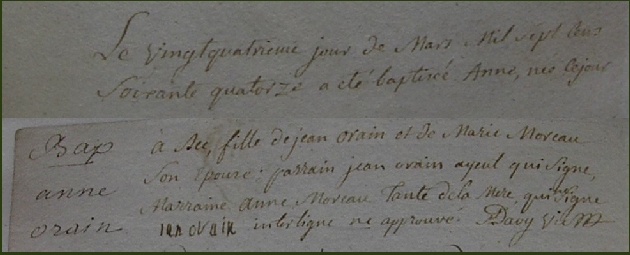 Le vingtquatrieme jour de Mars Mil sept Cens
Soixante quatorze a eté baptiseé Anne, neé Cejour
Bap
anne
orain
à Sec, fille de jean orain et de Marie Moreau
Son Epouse; parrain jean orain ayeul qui Signe,
Marraine Anne Moreau Tante de la Mere, qui Signe
orain interligne ne approuvé. Davy